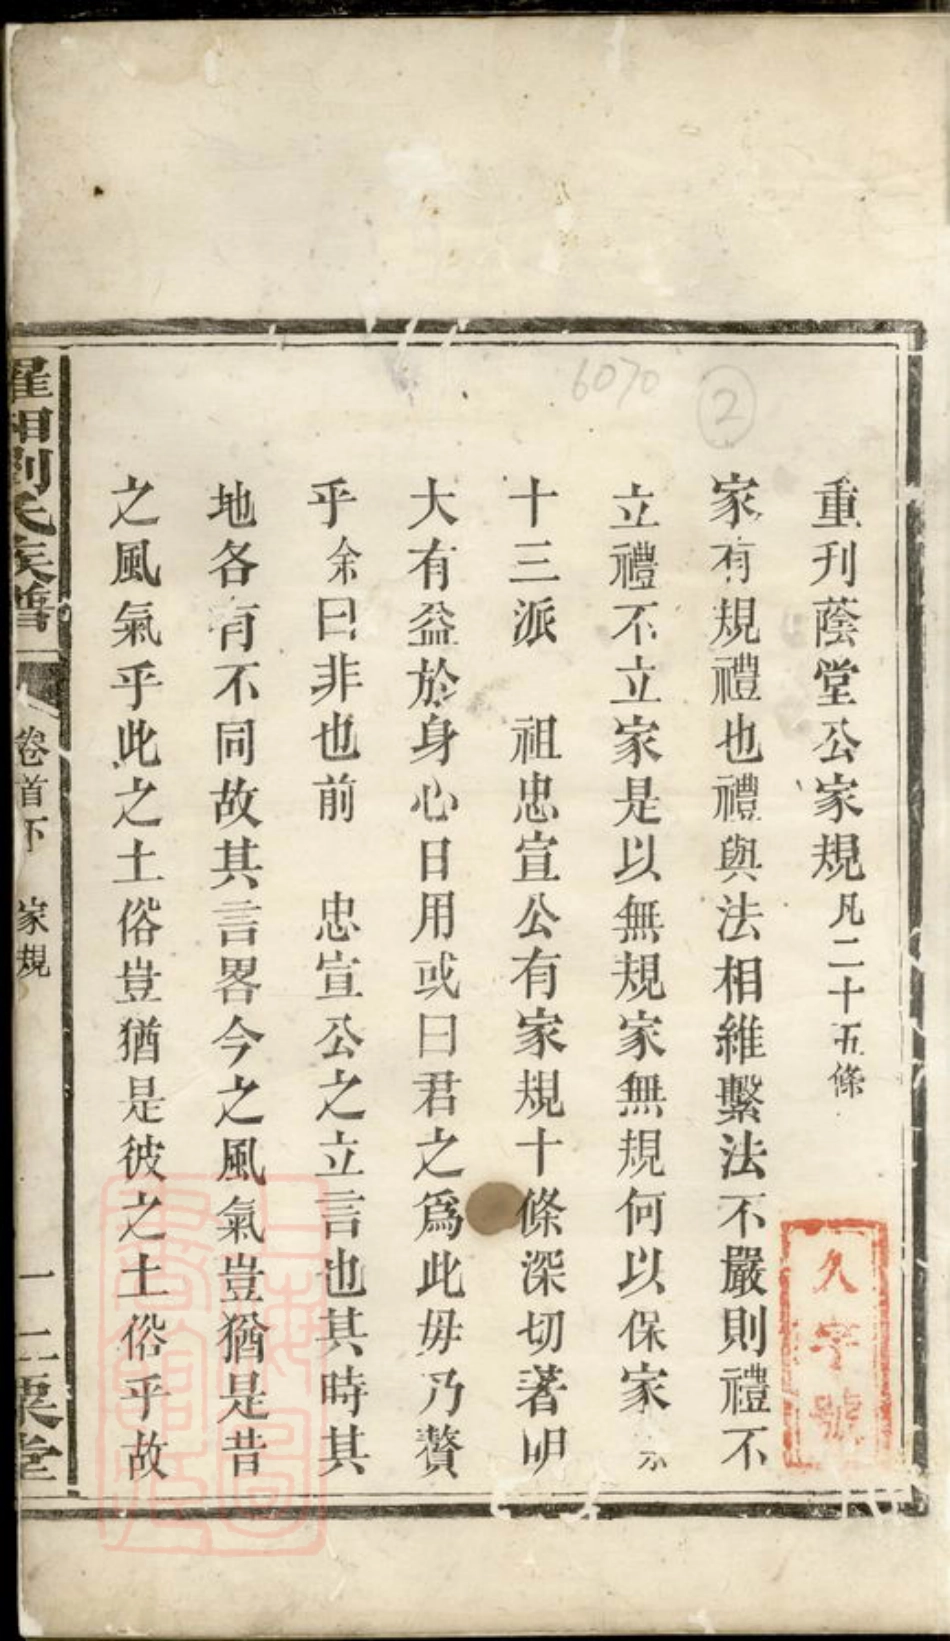 6070
2
重刊蔭堂公家規凡二十五條
家有規禮也禮與法相維繫法不嚴則禮不
立禮不立家是以無規家無規何以保家
十三派　祖忠宣公有家規十條深切著明
大有益於身心日用或曰君之爲此毋乃贅
乎余曰非也前　忠宣公之立言也其時其
地各有不同故其言畧今之風氣豈猶是昔
之風氣乎此之土俗豈猶是彼之土俗乎故
劉氏族譜
卷首下　家規
一　二栗堂
久字號